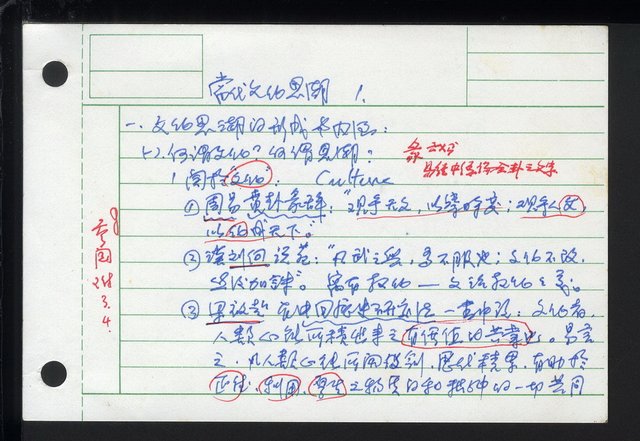 當代文化思潮 1.
一、文化思潮的形成與內涵：
(一)、何謂文化？何謂思潮？
1. 關於“文化”： Culture
易經中 賁卦之文彖
① 周易賁卦彖辭：“觀乎天文，以察時變；觀乎人文，
以化成天下。”
② 漢劉向說苑：“凡武之興，為不服也；文化不改，
然後加誅”。 文治教化之義。
③ 梁啟超在中國歷史研究法一書中說：文化者，
人類心能所積出來之有價值的共業也。易言
之，凡人類心能所開，積累，有助於
正德、利用、厚生之物質的和精神的一切共同